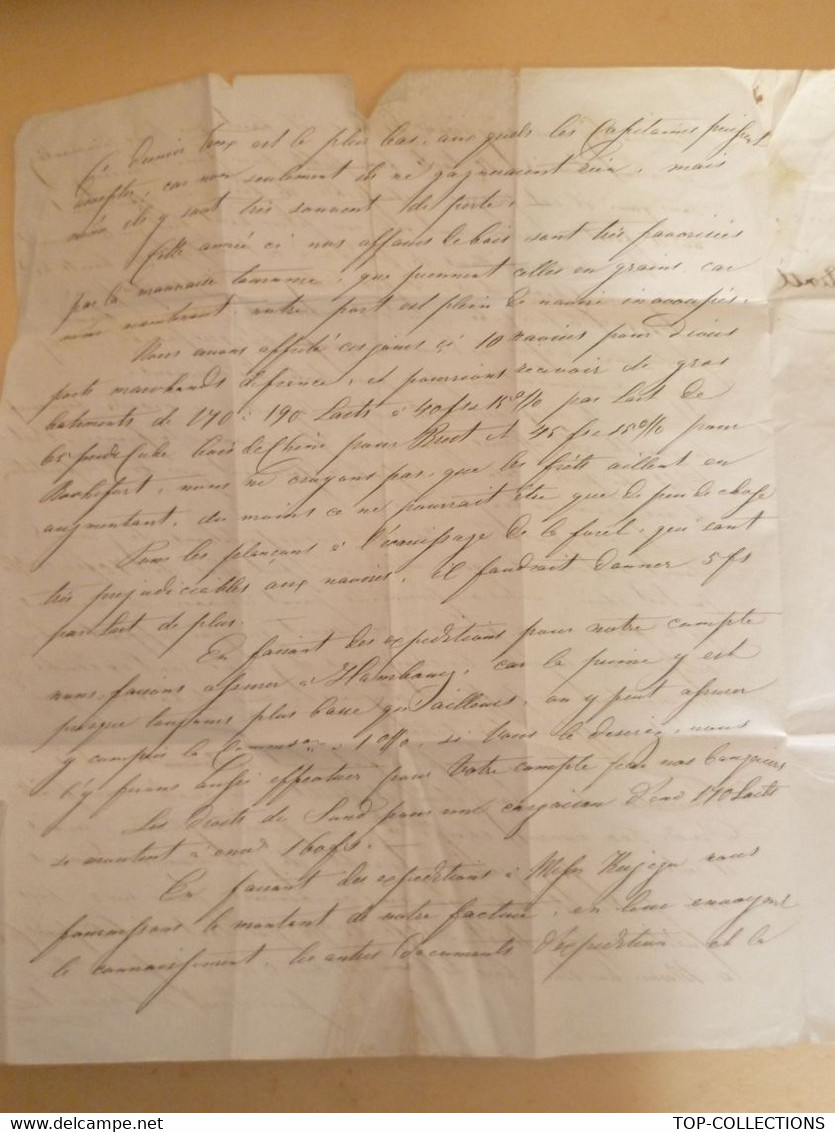 Ce dernier taux est le plus bas, auxquels les Capitaines puissent
accepter, car non seulement ils ne gagneraient rien, mais
même ils y sont très souvent de perte.
Cette année ci nos affaires de bois sont très favorisées
par la mauvaise tournure, que prennent celles en grains, car
notre port est plein de navires inoccupés.
Nous avons affrété ces jours ci 10 navires pour divers
ports marchands de france, et pourrions recevoir de gros
batiments de 170 à 190 Lasts à 40 fs & 15% par last de
65 pieds Cube bois de Chêne pour Brest et 45 fs & 15% pour
Rochefort, nous ne croyons pas que les frêts aillent en
augmentant, du moins ce ne pourrait être que de peu de chose
Pour les plançons à l'équarissage de la forêt, qui sont
très prejudiciables aux navires, il faudrait donner 5 fs
par last de plus.
En faisant des expéditions pour notre compte
nous faisons assurer à Hambourg, car la prime y est
presque toujours plus basse qu'ailleurs, on y peut assurer
y compris la Commission à 1%, si Vous le desirez, nous
l'y ferons aussi effectuer pour Votre compte par nos banquiers
Les droits de Sund pour une cargaison d'env 170 Lasts
se montent à env 160 fs.
En faisant des expeditions à Messrs nous
fournissons le montant de notre facture, en leur envoyant
le connaissement, les autres documents d'expedition et la
TOP-COLLECTIONS